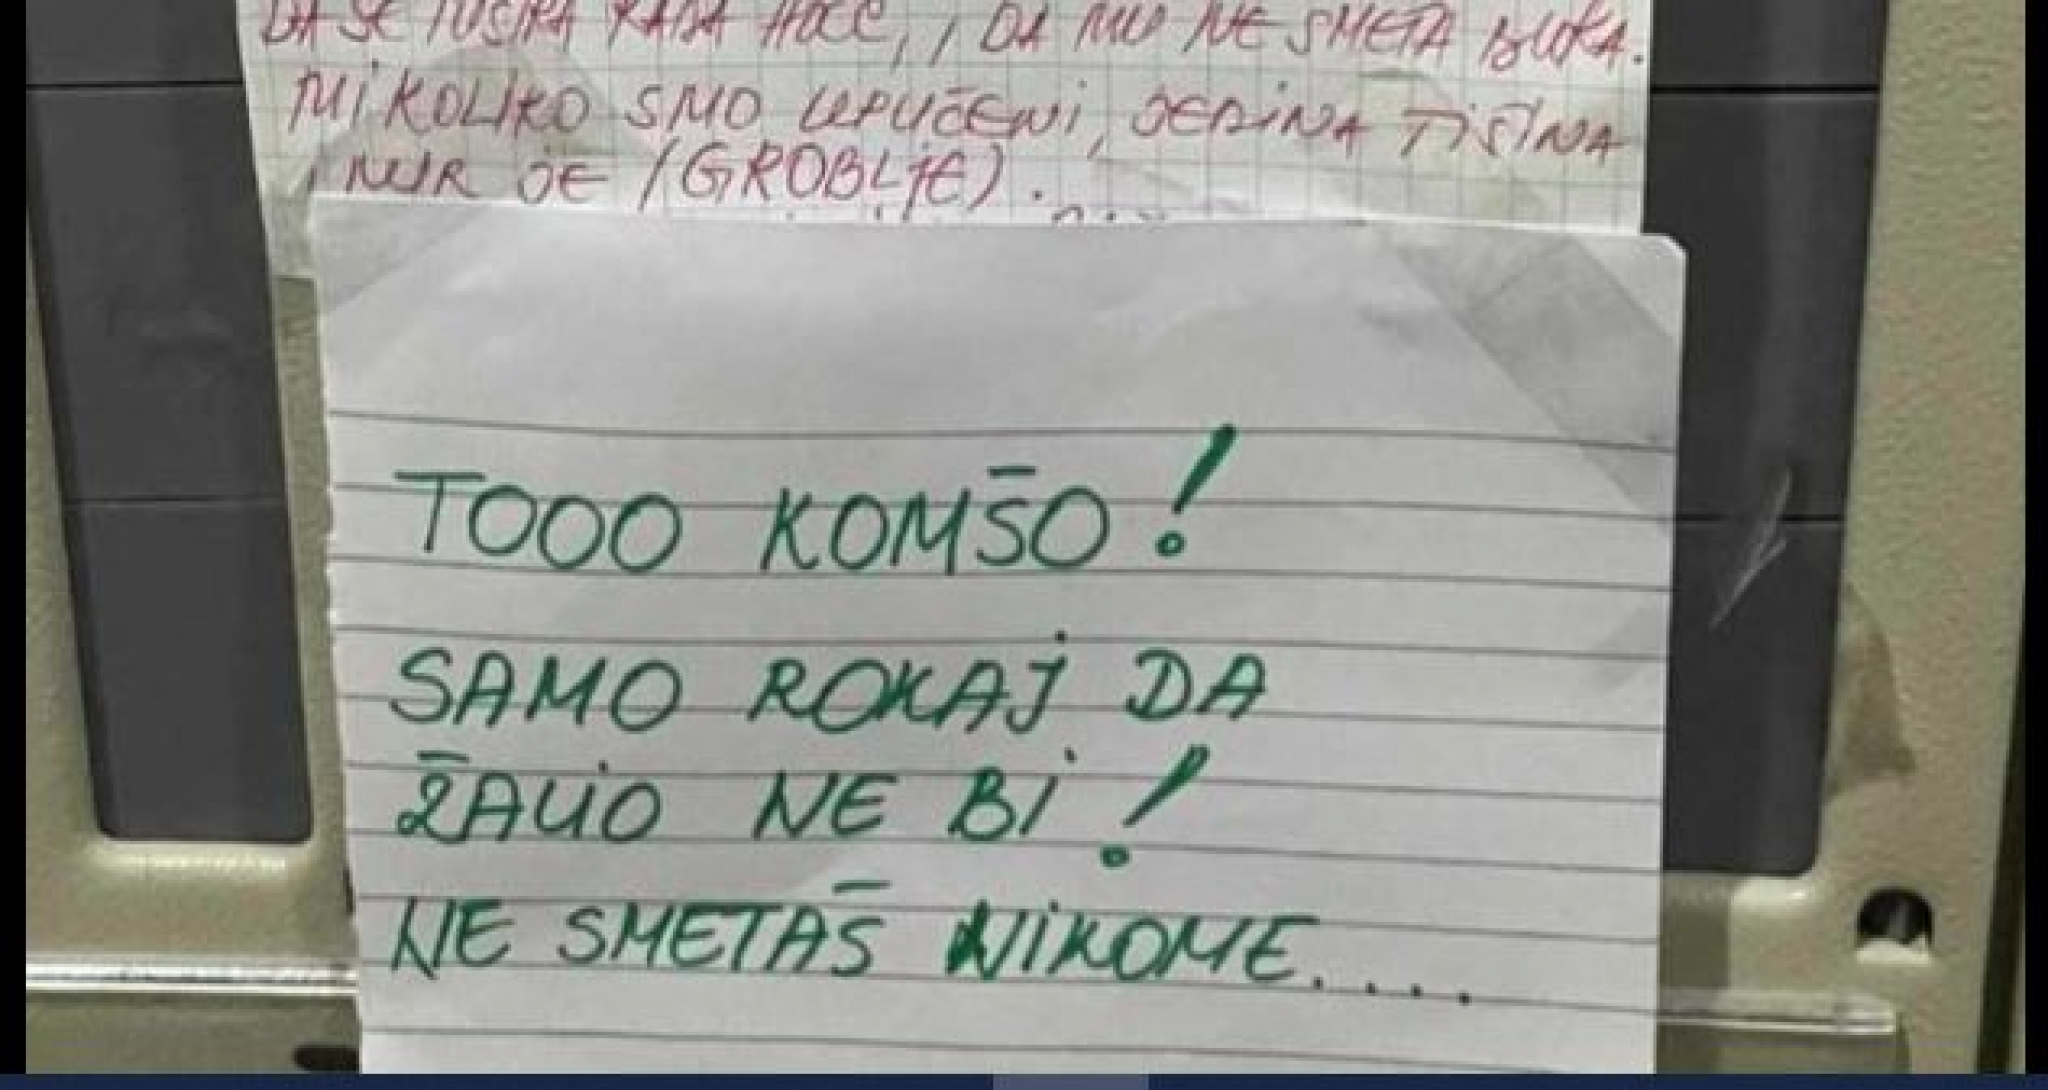 DA SE TUŠIRA KADA HOĆE, , DA MU NE SMETA BUKA.
MI KOLIKO SMO UPUĆENI, JEDINA TIŠINA
I MIR JE (GROBLJE).
TOOO KOMŠO!
SAMO ROKAJ DA
ŽALIO NE BI!
NE SMETAŠ NIKOME....